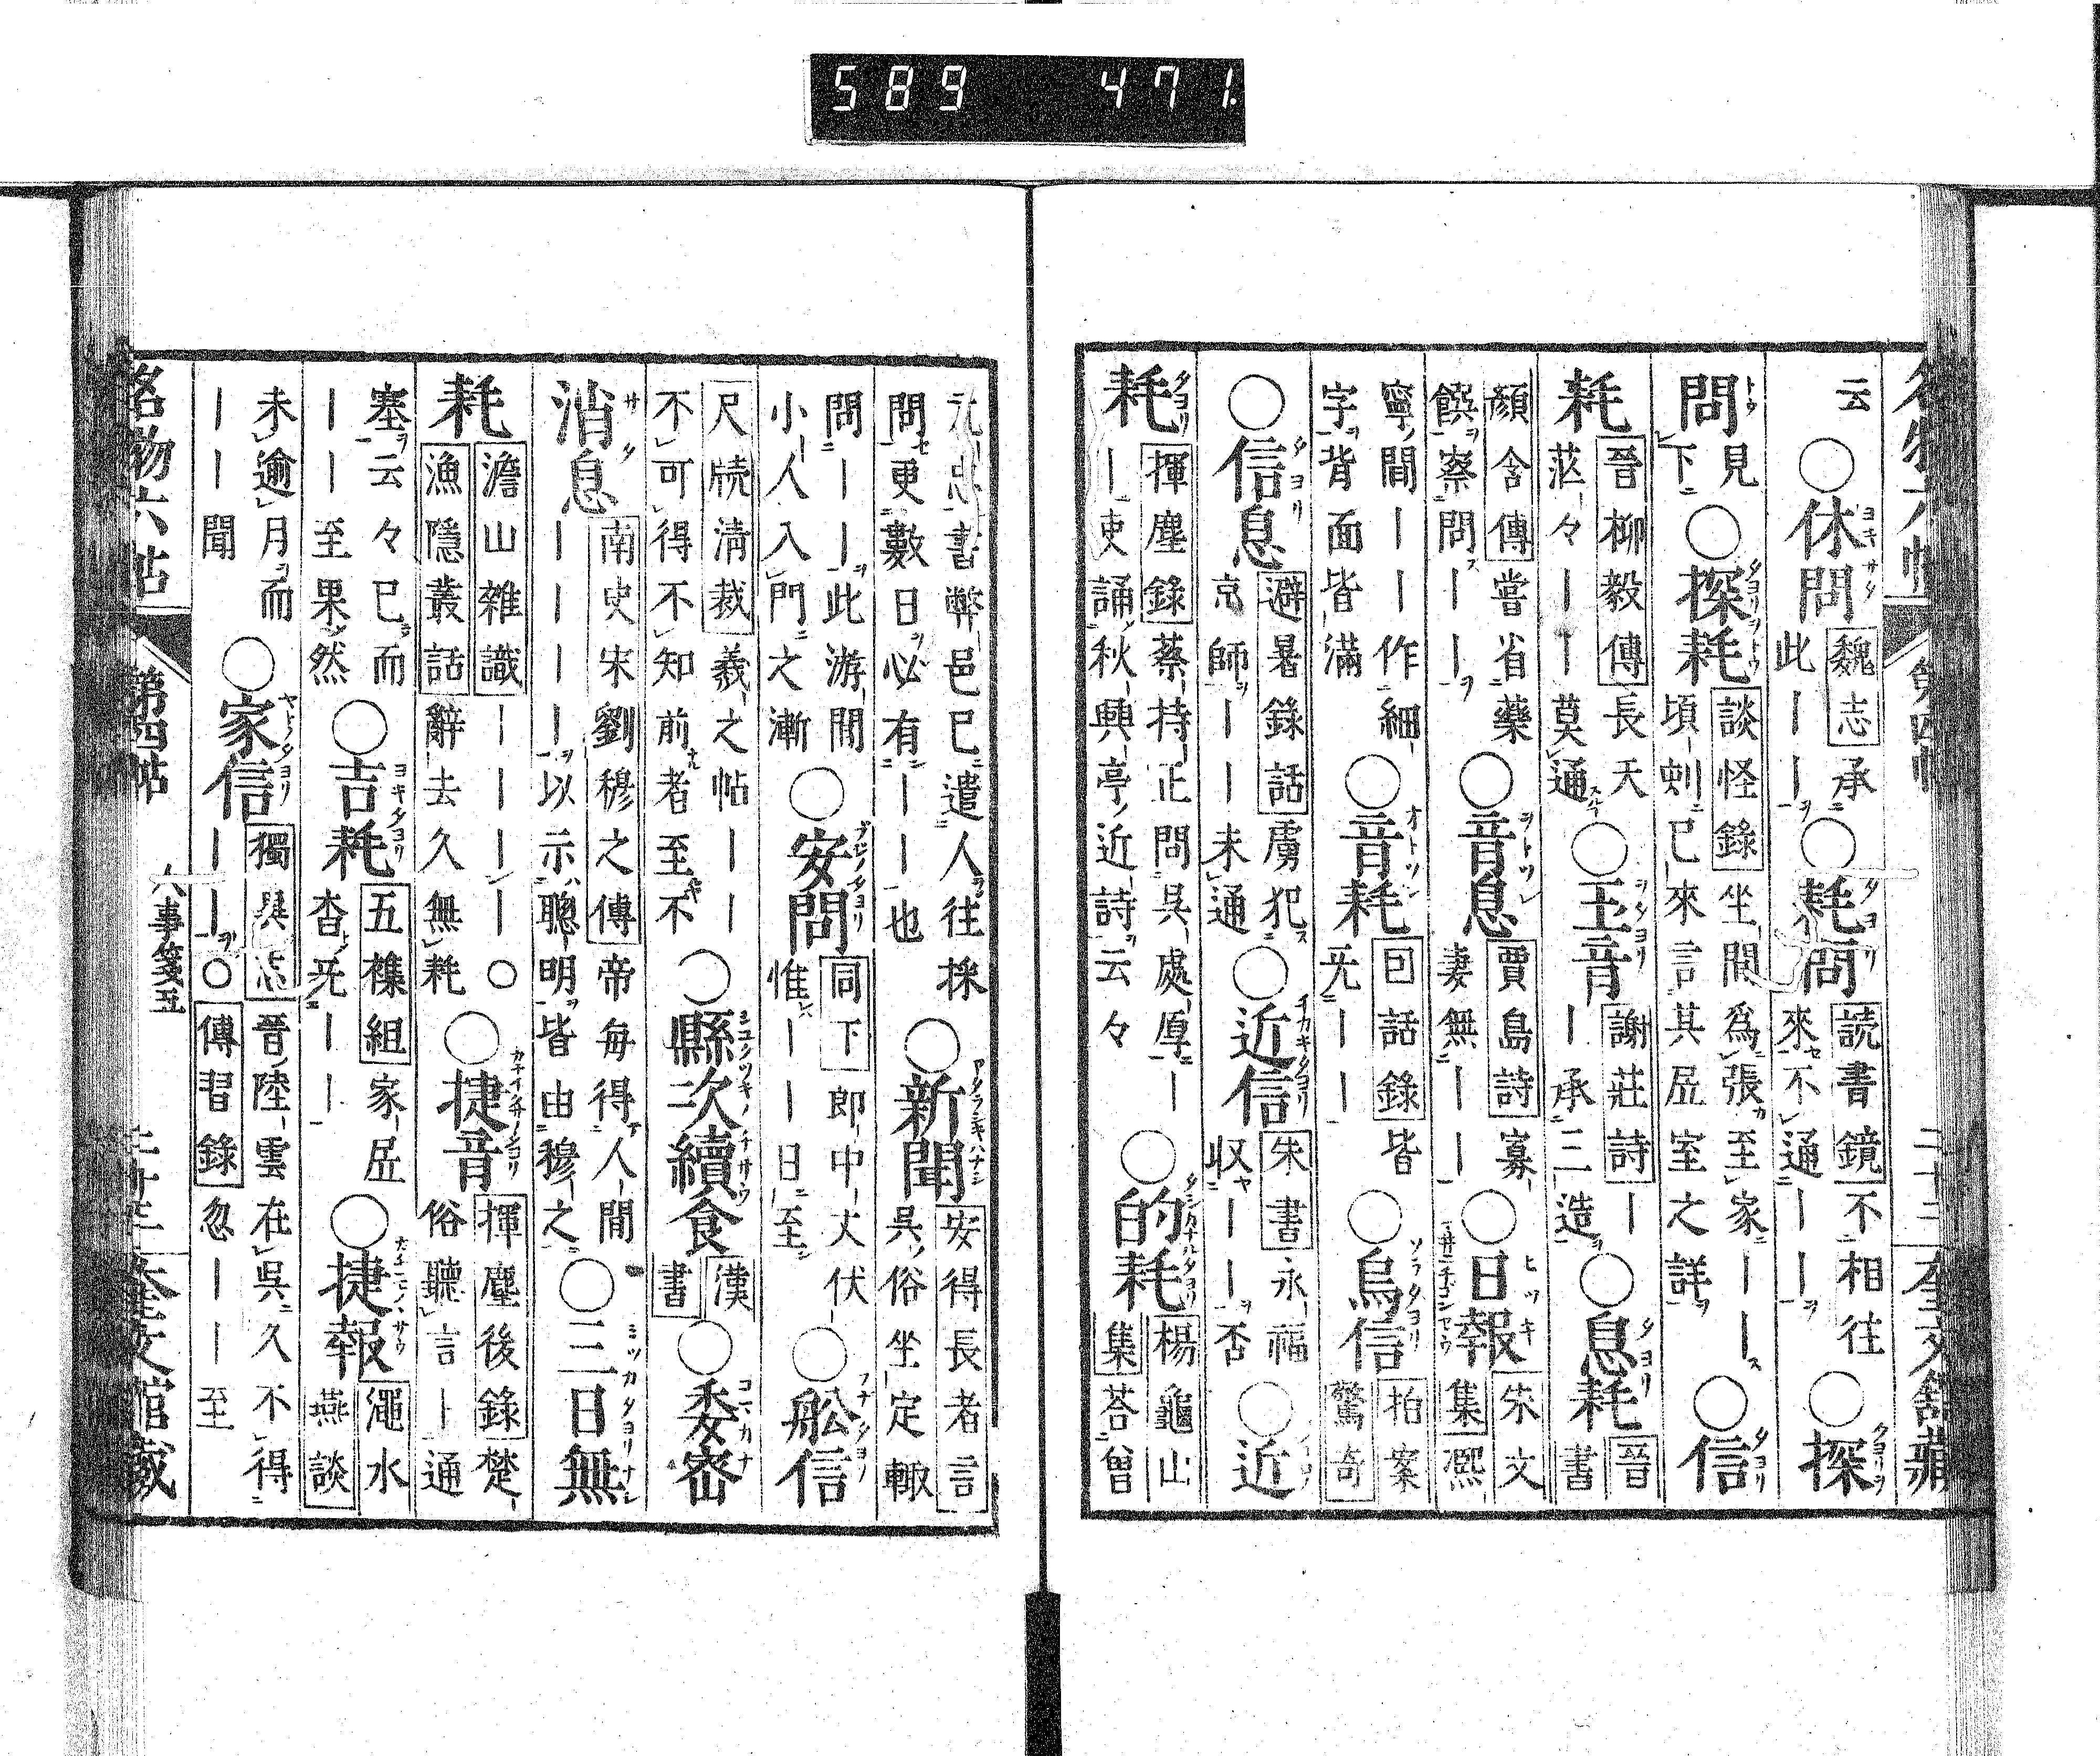 名物六帖 第四帖 二十二 奎文館藏
云 ○休問 魏志 承此｜｜ ○耗問 読書鏡 不相往來不通｜｜ ○探
問 見下 ○探耗 談怪錄 坐間爲張至家｜｜頃刻已來言其居室之詳 ○信
耗 晉柳毅傳 長天茫々｜｜莫通 ○玉音 謝莊詩 ｜｜承三造 ○息耗 晉書
顏含傳 嘗省藥饌察問｜｜ ○音息 賈島詩 寡妻無｜｜ ○日報 朱文集 熈
寧間｜｜作細字背面皆滿 ○音耗 回話錄 皆旡｜｜ ○鳥信 拍案驚奇
○信息 避暑錄話 虜犯京師｜｜未通 ○近信 朱書 永福収｜｜否 ○近
耗 揮塵錄 蔡持正問吳處厚｜｜吏誦秋興亭近詩云々 ○的耗 楊龜山集 荅曾
元忠書弊邑已遣人往探問更數日必有｜｜也 ○新聞 安得長者言 吳俗坐定輙
問｜｜此游間小人入門之漸 ○安問 同下 郎中丈伏惟｜｜日至 ○舩信
尺牘清裁 羲之帖｜｜不可得不知前者至不 ○縣次續食 漢書 ○委宻
消息 南史宋劉穆之傳 帝每得人間｜｜｜｜以示聰明皆由穆之 ○三日無
耗 澹山雜識 ｜｜｜｜○漁隱叢話 辭去久無耗 ○捷音 揮塵後錄 楚俗聽言｜通
塞云々已而｜｜至果然 ○吉耗 五襍組 家居杳旡｜｜ ○捷報 澠水燕談
未逾月而｜｜聞 ○家信 獨異志 晉陸雲在吳久不得｜｜○傳習錄 忽｜｜至
名物六帖 第四帖 人事箋五 二十三 奎文館藏
589 471.